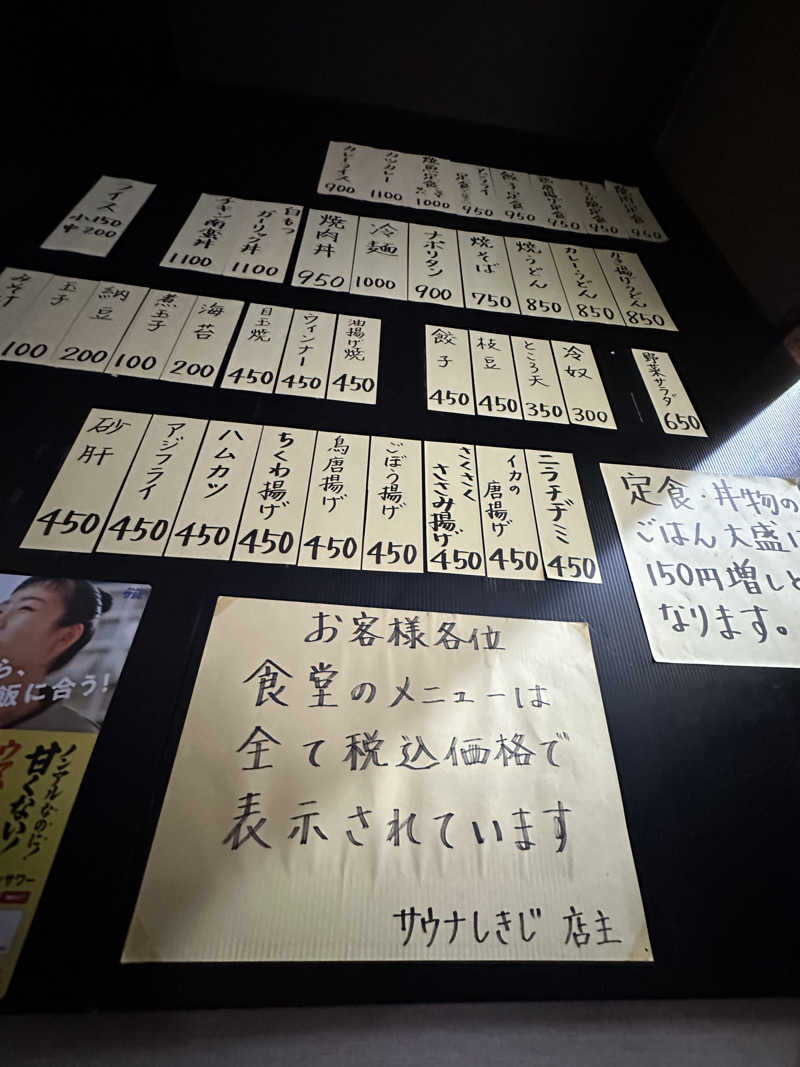 カレーライス 900
カツカレー 1100
1000
950
餃子定食 950
950
950
950
ライス 小150 中200
チキン南蛮丼 1100
白もつガーリック丼 1100
焼肉丼 950
冷麺 1000
ナポリタン 900
焼そば 750
焼うどん 850
カレーうどん 850
かき揚げうどん 850
みそ汁 100
玉子
納豆 200
煮玉子 100
海苔 200
目玉焼 450
ウィンナー 450
油揚げ焼 450
餃子 450
枝豆 450
ところ天 350
冷奴 300
野菜サラダ 650
砂肝 450
アジフライ 450
ハムカツ 450
ちくわ揚げ 450
鳥唐揚げ 450
ごぼう揚げ 450
さくさくささみ揚げ 450
イカの唐揚げ 450
ニラチヂミ 450
定食・丼物の
ごはん大盛は
150円増しと
なります。
お客様各位
食堂のメニューは
全て税込価格で
表示されています
サウナしきじ 店主
ら、
飯に合う!
ノンアルなのに!
甘くない!
サワー